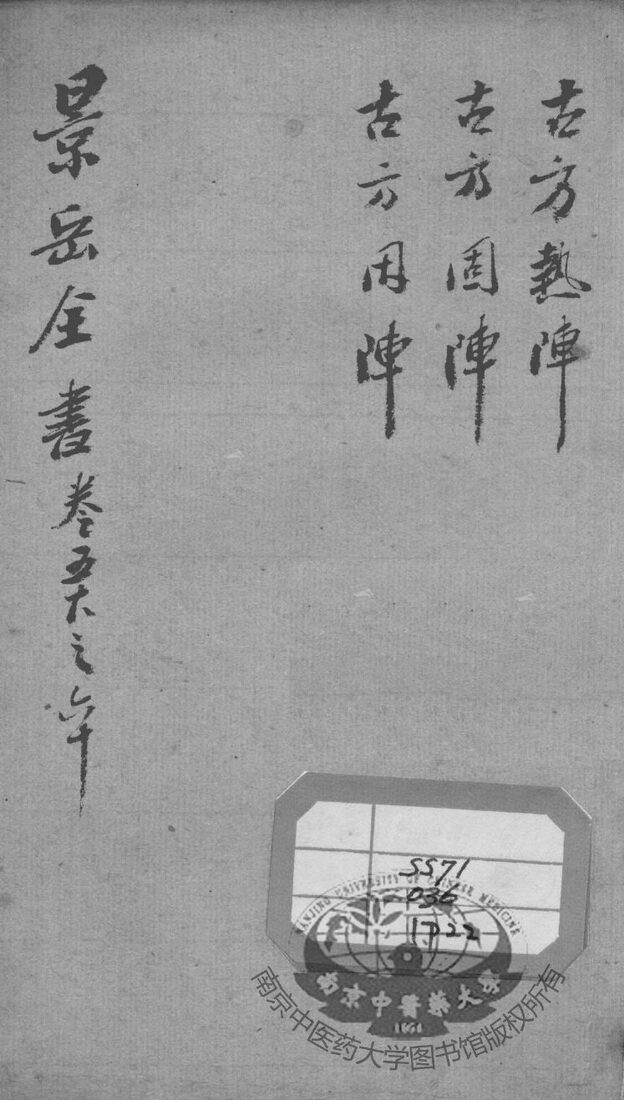 古方熱陣
古方固陣
古方因陣
景岳全書卷五十八之六十
SS71
036
1722
NANJING UNIVERSITY OF CHINESE MEDICINE
南京中醫藥大學
1954
南京中医药大学图书馆版权所有